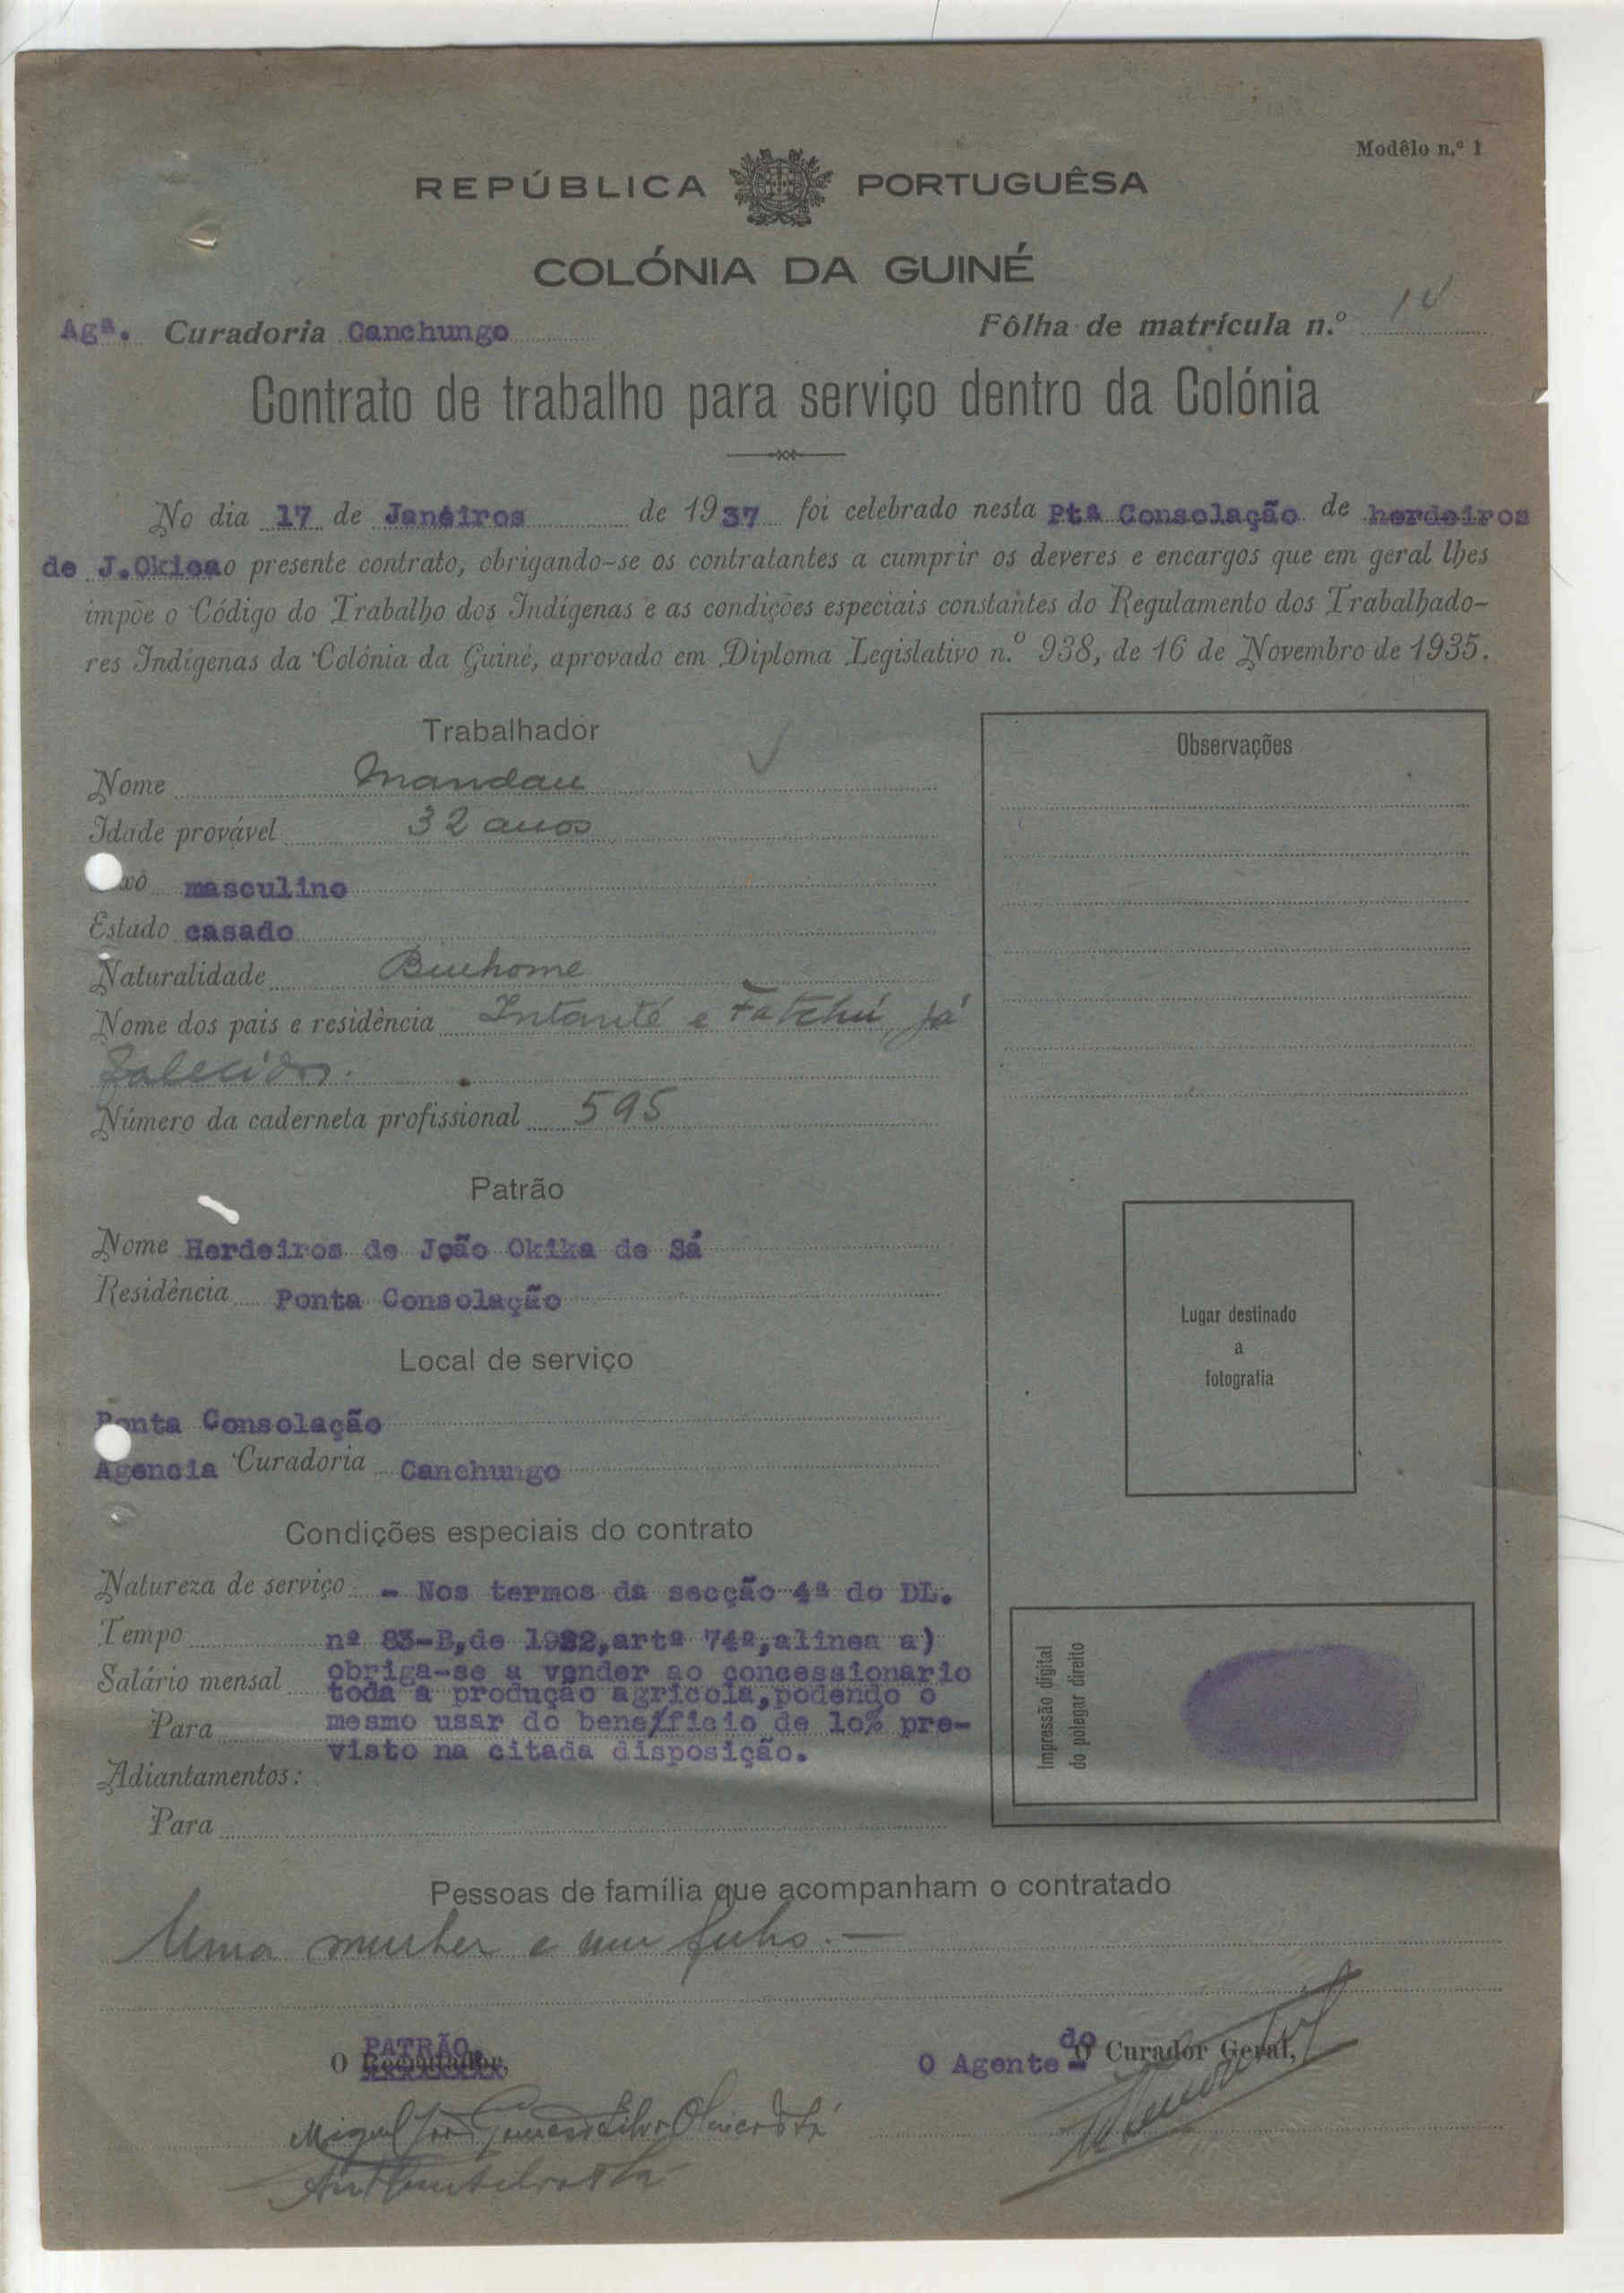 Modêlo n.º 1
REPÚBLICA PORTUGUÊSA
COLÓNIA DA GUINÉ
Agª. Curadoria Canchungo Fôlha de matrícula n.º 14
Contrato de trabalho para serviço dentro da Colónia
No dia 17 de Janeiros de 1937 foi celebrado nesta Ptª Consolação de herdeiros
de J.Okica o presente contrato, obrigando-se os contratantes a cumprir os deveres e encargos que em geral lhes
impõe o Código do Trabalho dos Indígenas e as condições especiais constantes do Regulamento dos Trabalhado-
res Indígenas da Colónia da Guiné, aprovado em Diploma Legislativo n.º 938, de 16 de Novembro de 1935.
Trabalhador
Nome Mandau
Idade provável 32 anos
xo masculino
Estado casado
Naturalidade Biuhome
Nome dos pais e residência Intanté e Fatchú, já
falecidos.
Número da caderneta profissional 595
Patrão
Nome Herdeiros de João Okika de Sá
Residência Ponta Consolação
Local de serviço
Ponta Consolação
Agencia Curadoria Canchungo
Condições especiais do contrato
Natureza de serviço - Nos termos da secção 4ª do DL.
Tempo nº 83-B,de 1922,artº 74º,alinea a)
Salário mensal obriga-se a vender ao concessionario
toda a produção agricola,podendo o
Para mesmo usar do beneficio de 10% pre-
visto na citada disposição.
Adiantamentos:
Para
Observações
Lugar destinado
a
fotografia
Impressão digital
do polegar direito
Pessoas de família que acompanham o contratado
Uma mulher e um filho.—
O PATRÃO,
Recrutador,
O Agente do O Curador Geral,
Miguel